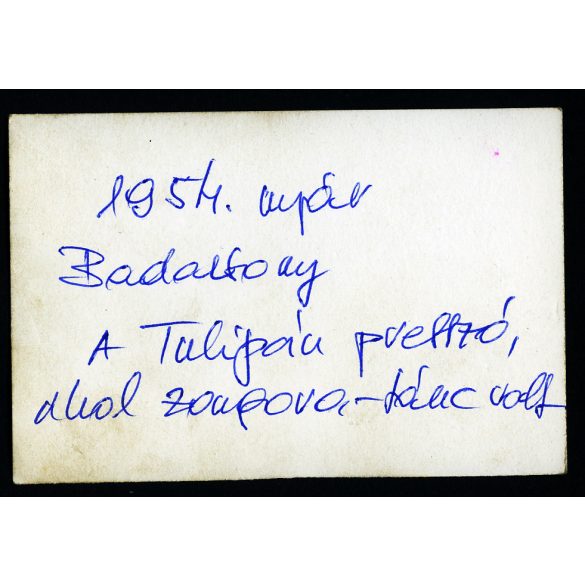 1954. nyár
Badacsony
A Tulipán presszó,
ahol zongora,-tánc volt